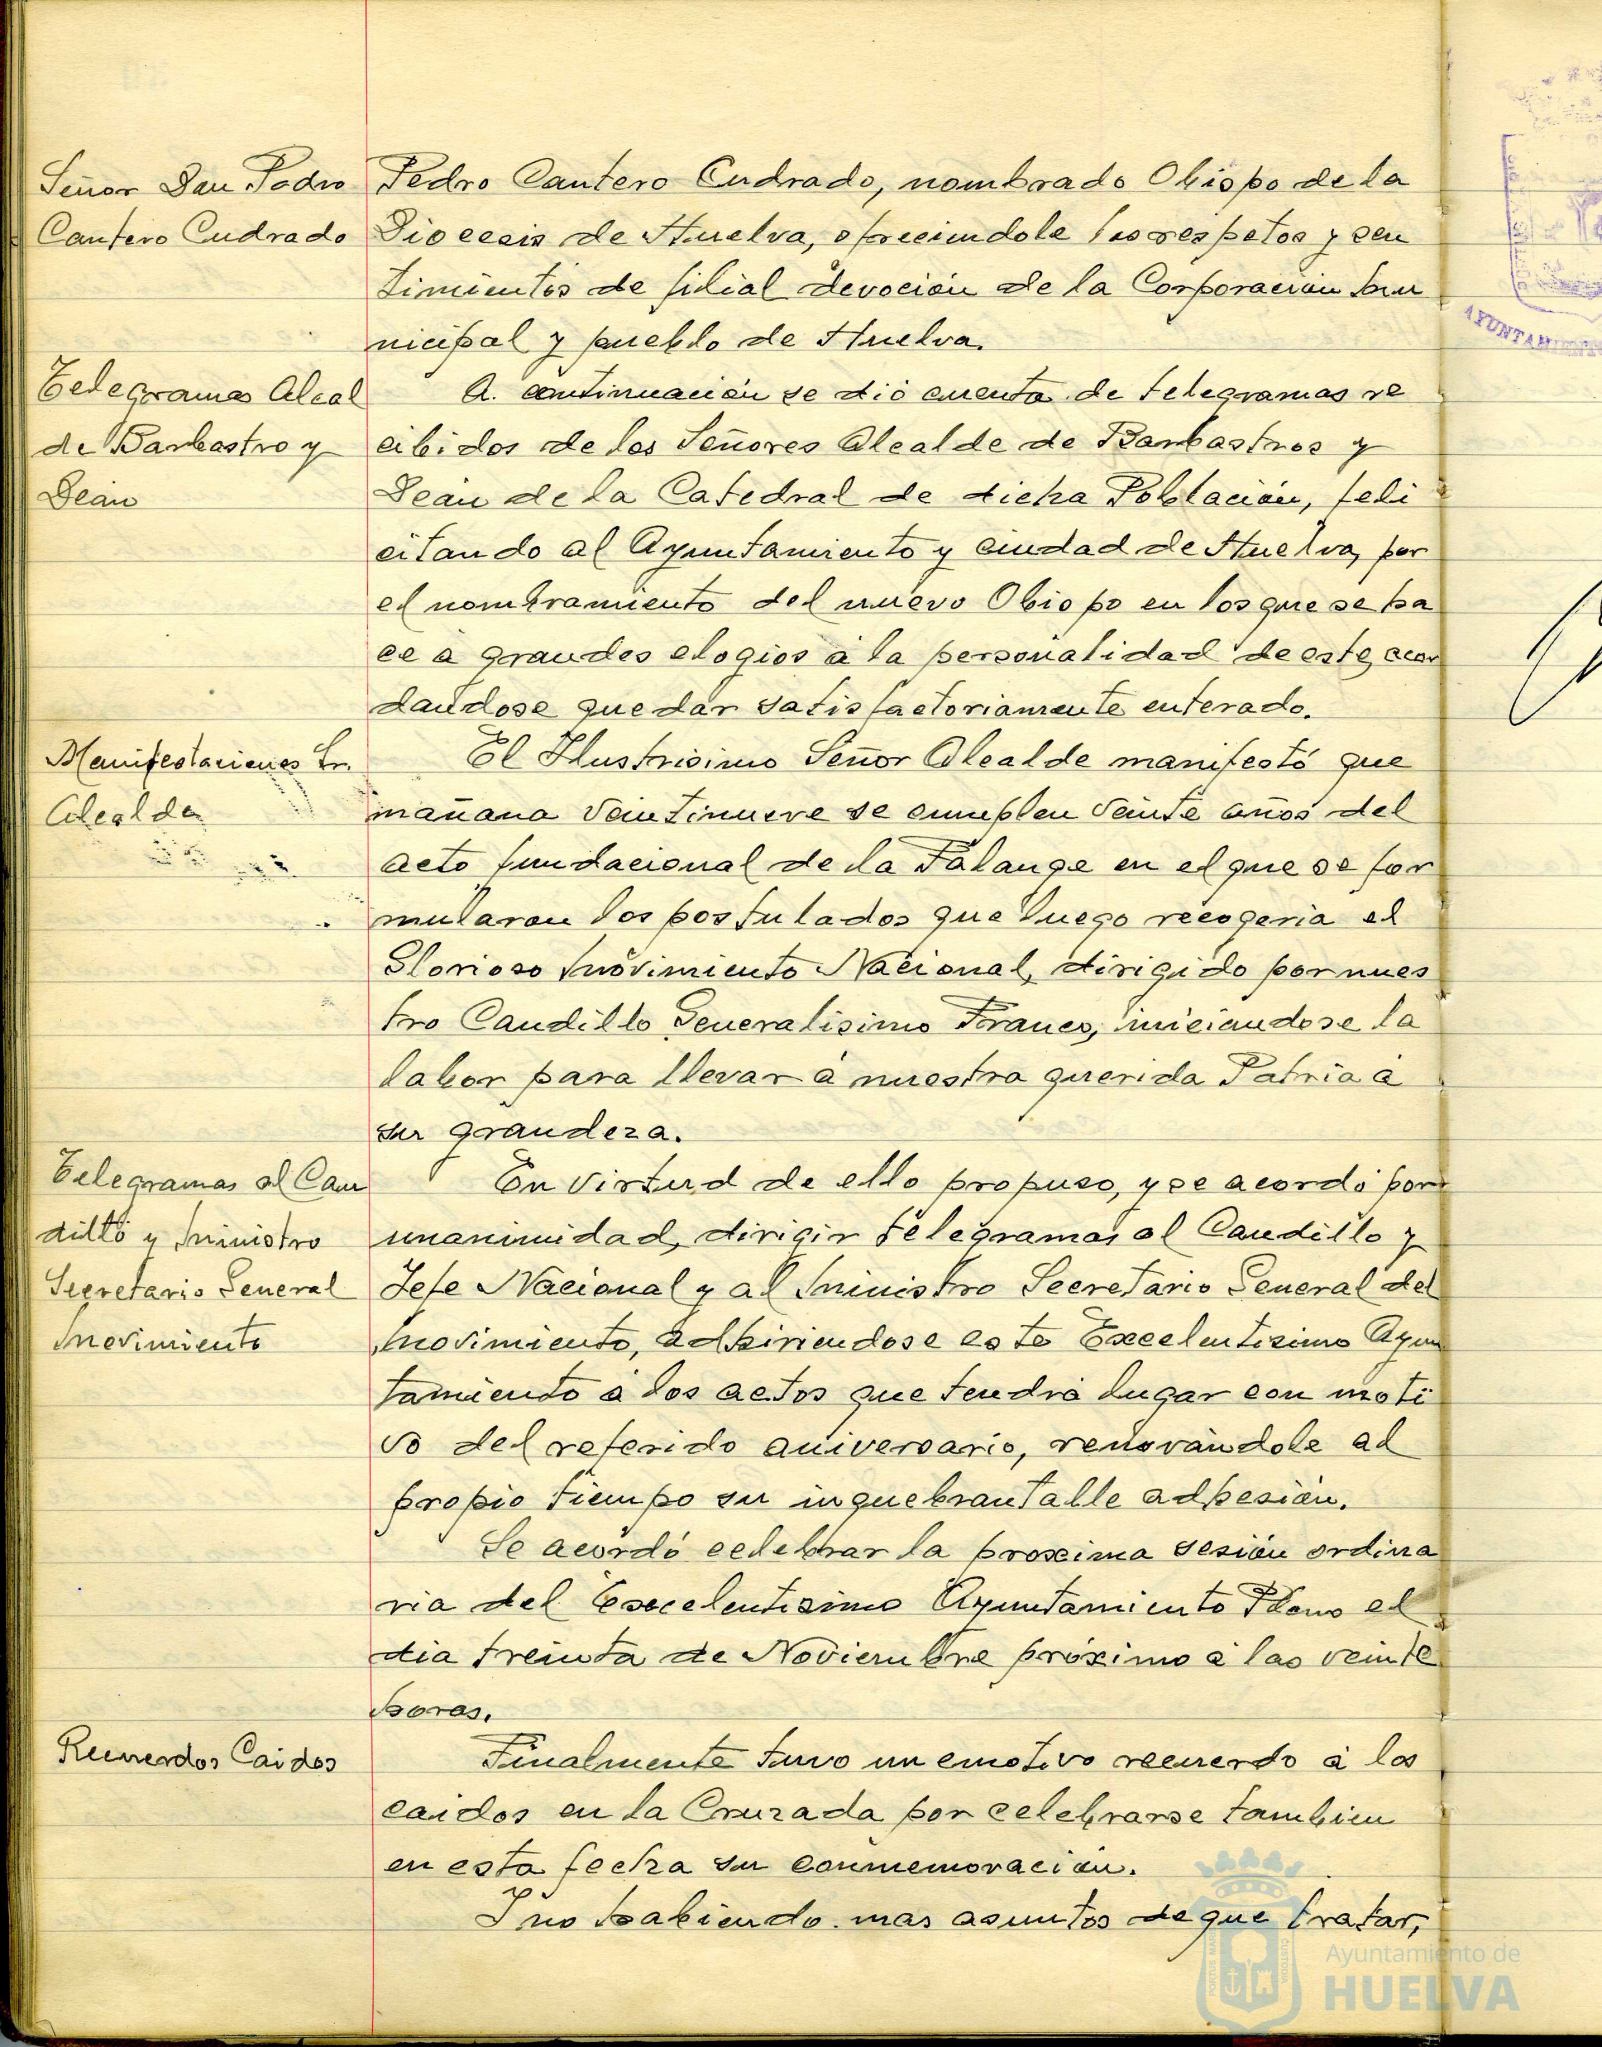 Señor Don Pedro
Cantero Cudrado
Pedro Cantero Cudrado, nombrado Obispo de la
Diocesis de Huelva, ofreciendole los respetos y sen
timientos de filial devoción de la Corporación Mu
nicipal y pueblo de Huelva.
Telegramas Alcal
de Barbastro y
Deán
A continuación se dió cuenta de telegramas re
cibidos de los Señores Alcalde de Barbastros y
Deán de la Catedral de dicha Población, feli
citando al Ayuntamiento y ciudad de Huelva, por
el nombramiento del nuevo Obispo en los que se ha
ce á grandes elogios á la personalidad de este, acor
dandose quedar satisfactoriamente enterado.
Manifestaciones Sr.
Alcalde
El Ilustrisimo Señor Alcalde manifestó que
mañana veintinueve se cumplen veinte años del
acto fundacional de la Falange en el que se for
mularon los postulados que luego recogeria el
Glorioso Movimiento Nacional, dirigido por nues
tro Caudillo Generalisimo Franco, iniciandose la
labor para llevar á nuestra querida Patria á
su grandeza.
Telegramas al Cau
dillo y Ministro
Secretario General
Movimiento
En virtud de ello propuso, y se acordó por
unanimidad, dirigir telegramas al Caudillo y
Jefe Nacional y al Ministro Secretario General del
Movimiento, adhiriendose este Excelentisimo Ayun
tamiento á los actos que tendrá lugar con moti
vo del referido aniversario, renovándole al
propio tiempo su inquebrantable adhesión.
Se acordó celebrar la proxima sesión ordina
ria del Excelentisimo Ayuntamiento Pleno el
dia treinta de Noviembre próximo á las veinte
horas.
Recuerdos Caidos
Finalmente tuvo un emotivo recuerdo á los
caidos en la Cruzada por celebrarse tambien
en esta fecha su conmemoración.
Y no habiendo mas asuntos de que tratar,
AYUNTAMIENTO
Ayuntamiento de
HUELVA